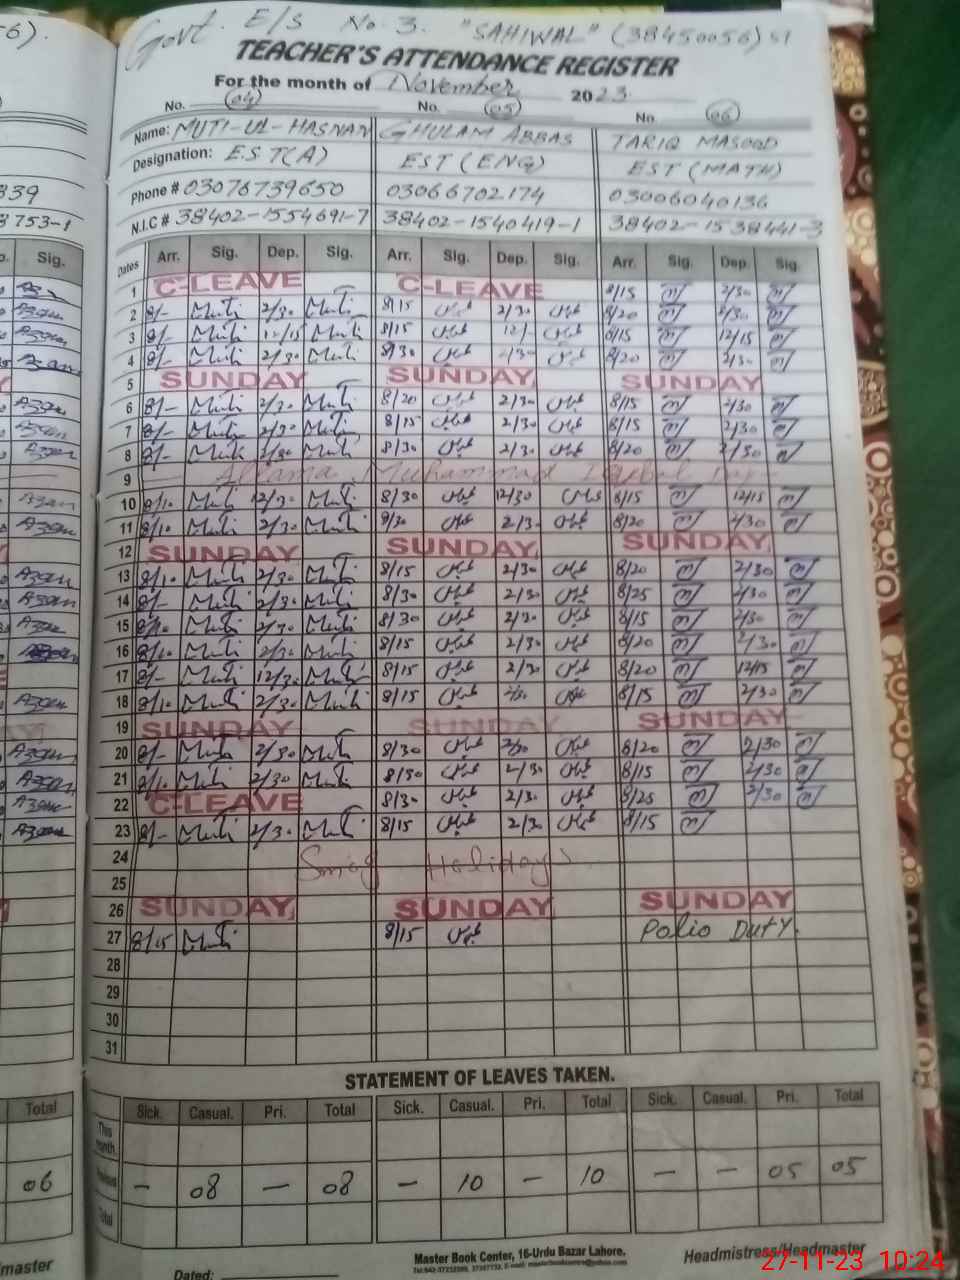 Govt. E/S No 3. "SAHIWAL" (38450056) st
TEACHER'S ATTENDANCE REGISTER
For the month of November 2023
No. (04) No. (05) No. (06)
Name: MUTI-UL-HASNAN GHULAM ABBAS TARIQ MASOOD
Designation: E.S T(A) EST (ENG) EST (MATH)
Phone # 03076739650 03066702174 03006040136
N.I.C # 38402-1554691-7 38402-1540419-1 38402-1538441-3
Dates Arr. Sig. Dep. Sig. Arr. Sig. Dep. Sig. Arr. Sig. Dep. Sig.
1 C-LEAVE C-LEAVE 8/15 2/30
2 8/- Muti 2/30 Muti 8/15 عباس 2/30 عباس 8/20 2/30
3 8/- Muti 12/15 Muti 8/15 عباس 12/- عباس 8/15 12/15
4 8/- Muti 2/30 Muti 8/30 عباس 2/30 عباس 8/20 2/30
5 SUNDAY SUNDAY SUNDAY
6 8/- Muti 2/30 Muti 8/20 عباس 2/30 عباس 8/15 2/30
7 8/- Muti 2/30 Muti 8/15 عباس 2/30 عباس 8/15 2/30
8 8/- Muti 2/30 Muti 8/30 عباس 2/30 عباس 8/20 2/30
9 Allama Muhammad Iqbal Day
10 8/10 Muti 12/30 Muti 8/30 عباس 12/30 عباس 8/15 12/15
11 8/10 Muti 2/30 Muti 9/30 عباس 2/30 عباس 8/20 2/30
12 SUNDAY SUNDAY SUNDAY
13 8/10 Muti 2/30 Muti 8/15 عباس 2/30 عباس 8/20 2/30
14 8/- Muti 2/30 Muti 8/30 عباس 2/30 عباس 8/25 2/30
15 8/10 Muti 2/30 Muti 8/30 عباس 2/30 عباس 8/15 2/30
16 8/10 Muti 2/30 Muti 8/15 عباس 2/30 عباس 8/20 2/30
17 8/- Muti 12/30 Muti 8/15 عباس 2/30 عباس 8/20 12/15
18 8/10 Muti 2/30 Muti 8/15 عباس 2/30 عباس 8/15 2/30
19 SUNDAY SUNDAY SUNDAY
20 8/- Muti 2/30 Muti 8/30 عباس 2/30 عباس 8/20 2/30
21 8/10 Muti 2/30 Muti 8/30 عباس 2/30 عباس 8/15 2/30
22 C-LEAVE 8/30 عباس 2/30 عباس 8/25 2/30
23 8/- Muti 2/30 Muti 8/15 عباس 2/30 عباس 8/15
24 Smog Holidays
25
26 SUNDAY SUNDAY SUNDAY
27 8/15 Muti 8/15 عباس Polio Duty.
28
29
30
31
STATEMENT OF LEAVES TAKEN.
Sick. Casual. Pri. Total Sick. Casual. Pri. Total Sick. Casual. Pri. Total
This month
- 08 - 08 - 10 - 10 - - 05 05
Total
Master Book Center, 16-Urdu Bazar Lahore.
Headmistress/Headmaster
Dated:
27-11-23 10:24